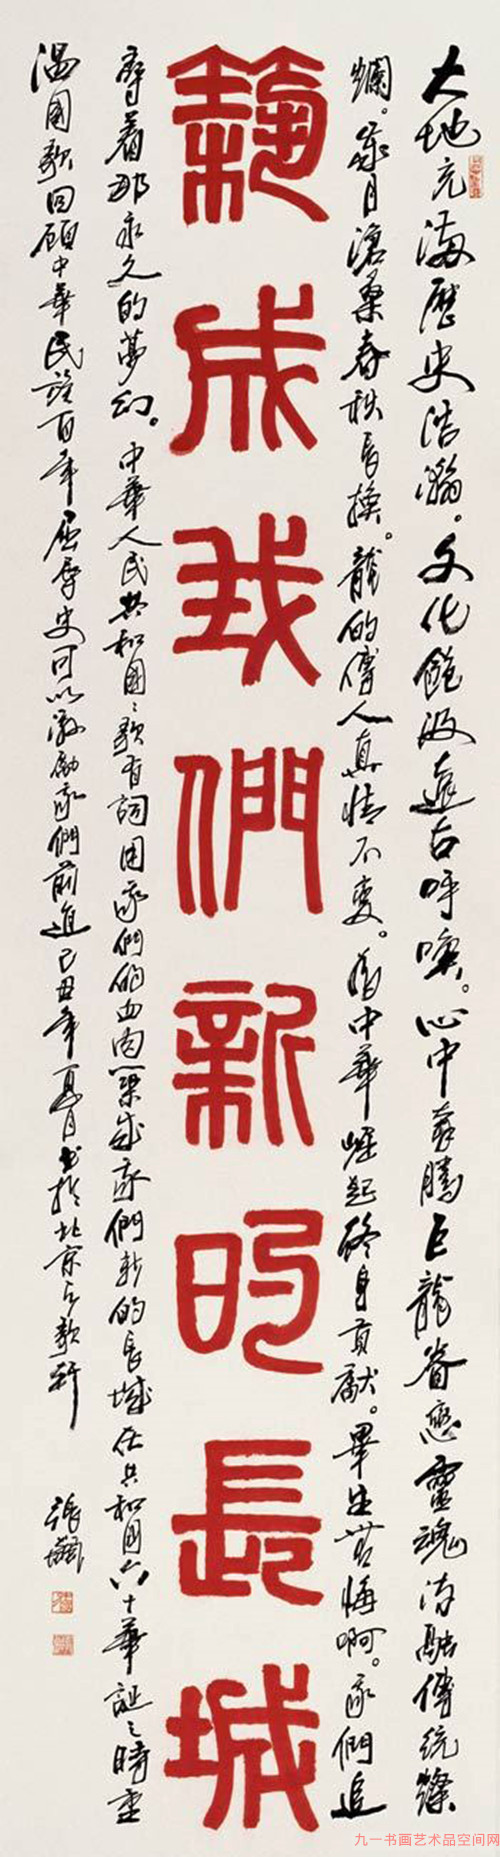 大地充滿歷史浩瀚。文化飽汲遠古呼喚。心中奔騰巨龍眷戀靈魂消融傳統燦
爛。歲月滄桑春秋長換。龍的傳人真情不變。為中華崛起終身貢獻。畢生無悔啊。我們追
築成我們新的長城
尋着那永久的夢幻。中華人民共和國〻歌有詞用我們的血肉築成我們新的長城在共和國六十華誕之時重
溫國歌回顧中華民族百年屈辱史可以激勵我們前進己丑年夏月書於北京歌軒
張飆
九一书画艺术品空间网